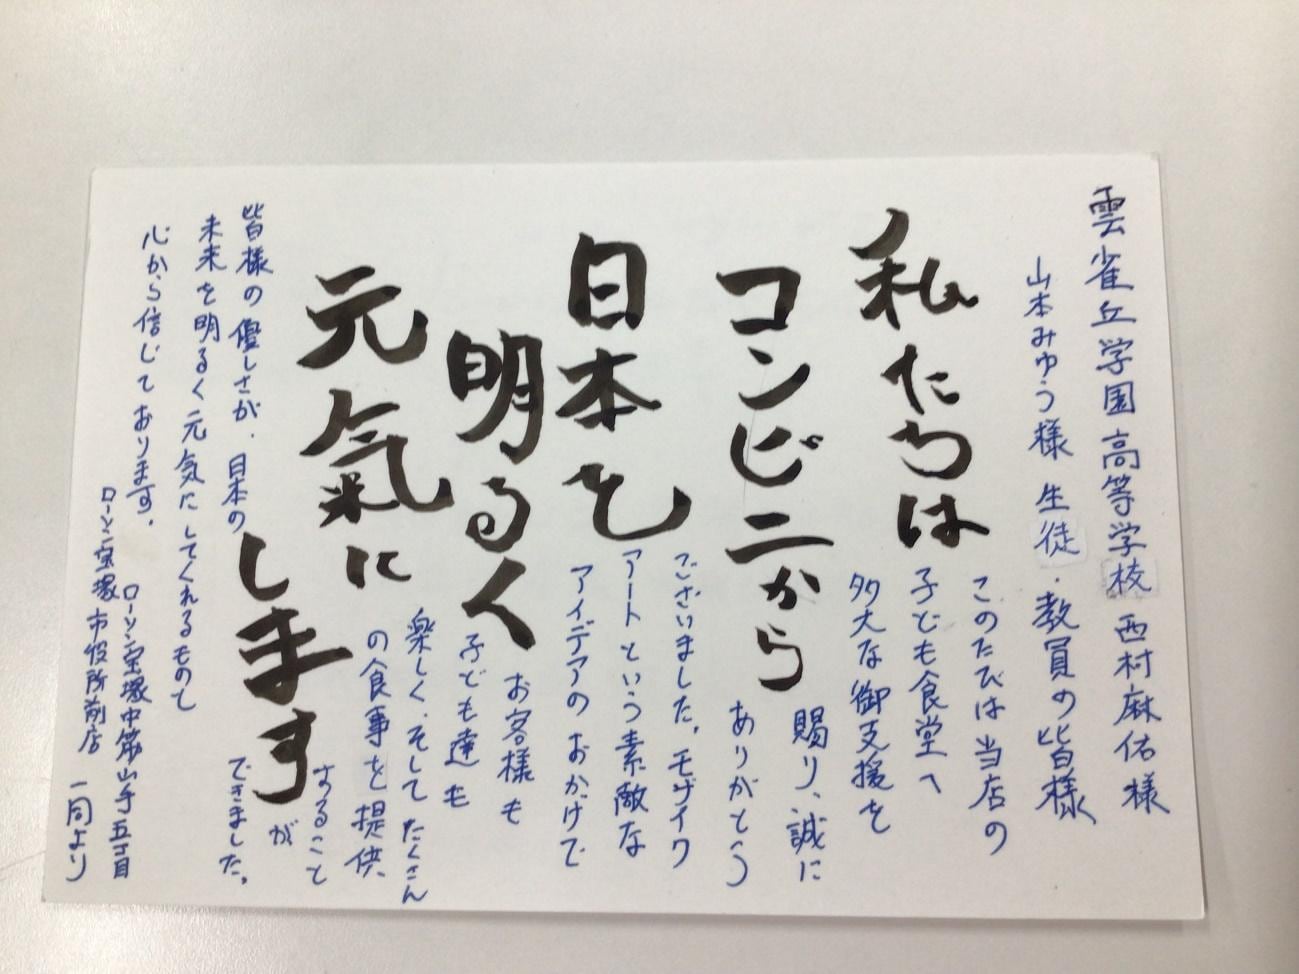 雲雀丘学園高等学校 西村麻佑様
山本みゆう様 生徒・教員の皆様
私たちは
コンビニから
日本を
明るく
元氣に
します
このたびは当店の
子ども食堂へ
多大な御支援を
賜り、誠に
ありがとう
ございました。モザイク
アートという素敵な
アイデアのおかげで
お客様も
子ども達も
楽しく、そしてたくさん
の食事を提供
すること
が
できました。
皆様の優しさが、日本の
未来を明るく元気にしてくれるものと
心から信じております。
ローソン宝塚中筋山手五丁目
ローソン宝塚市役所前店 一同より